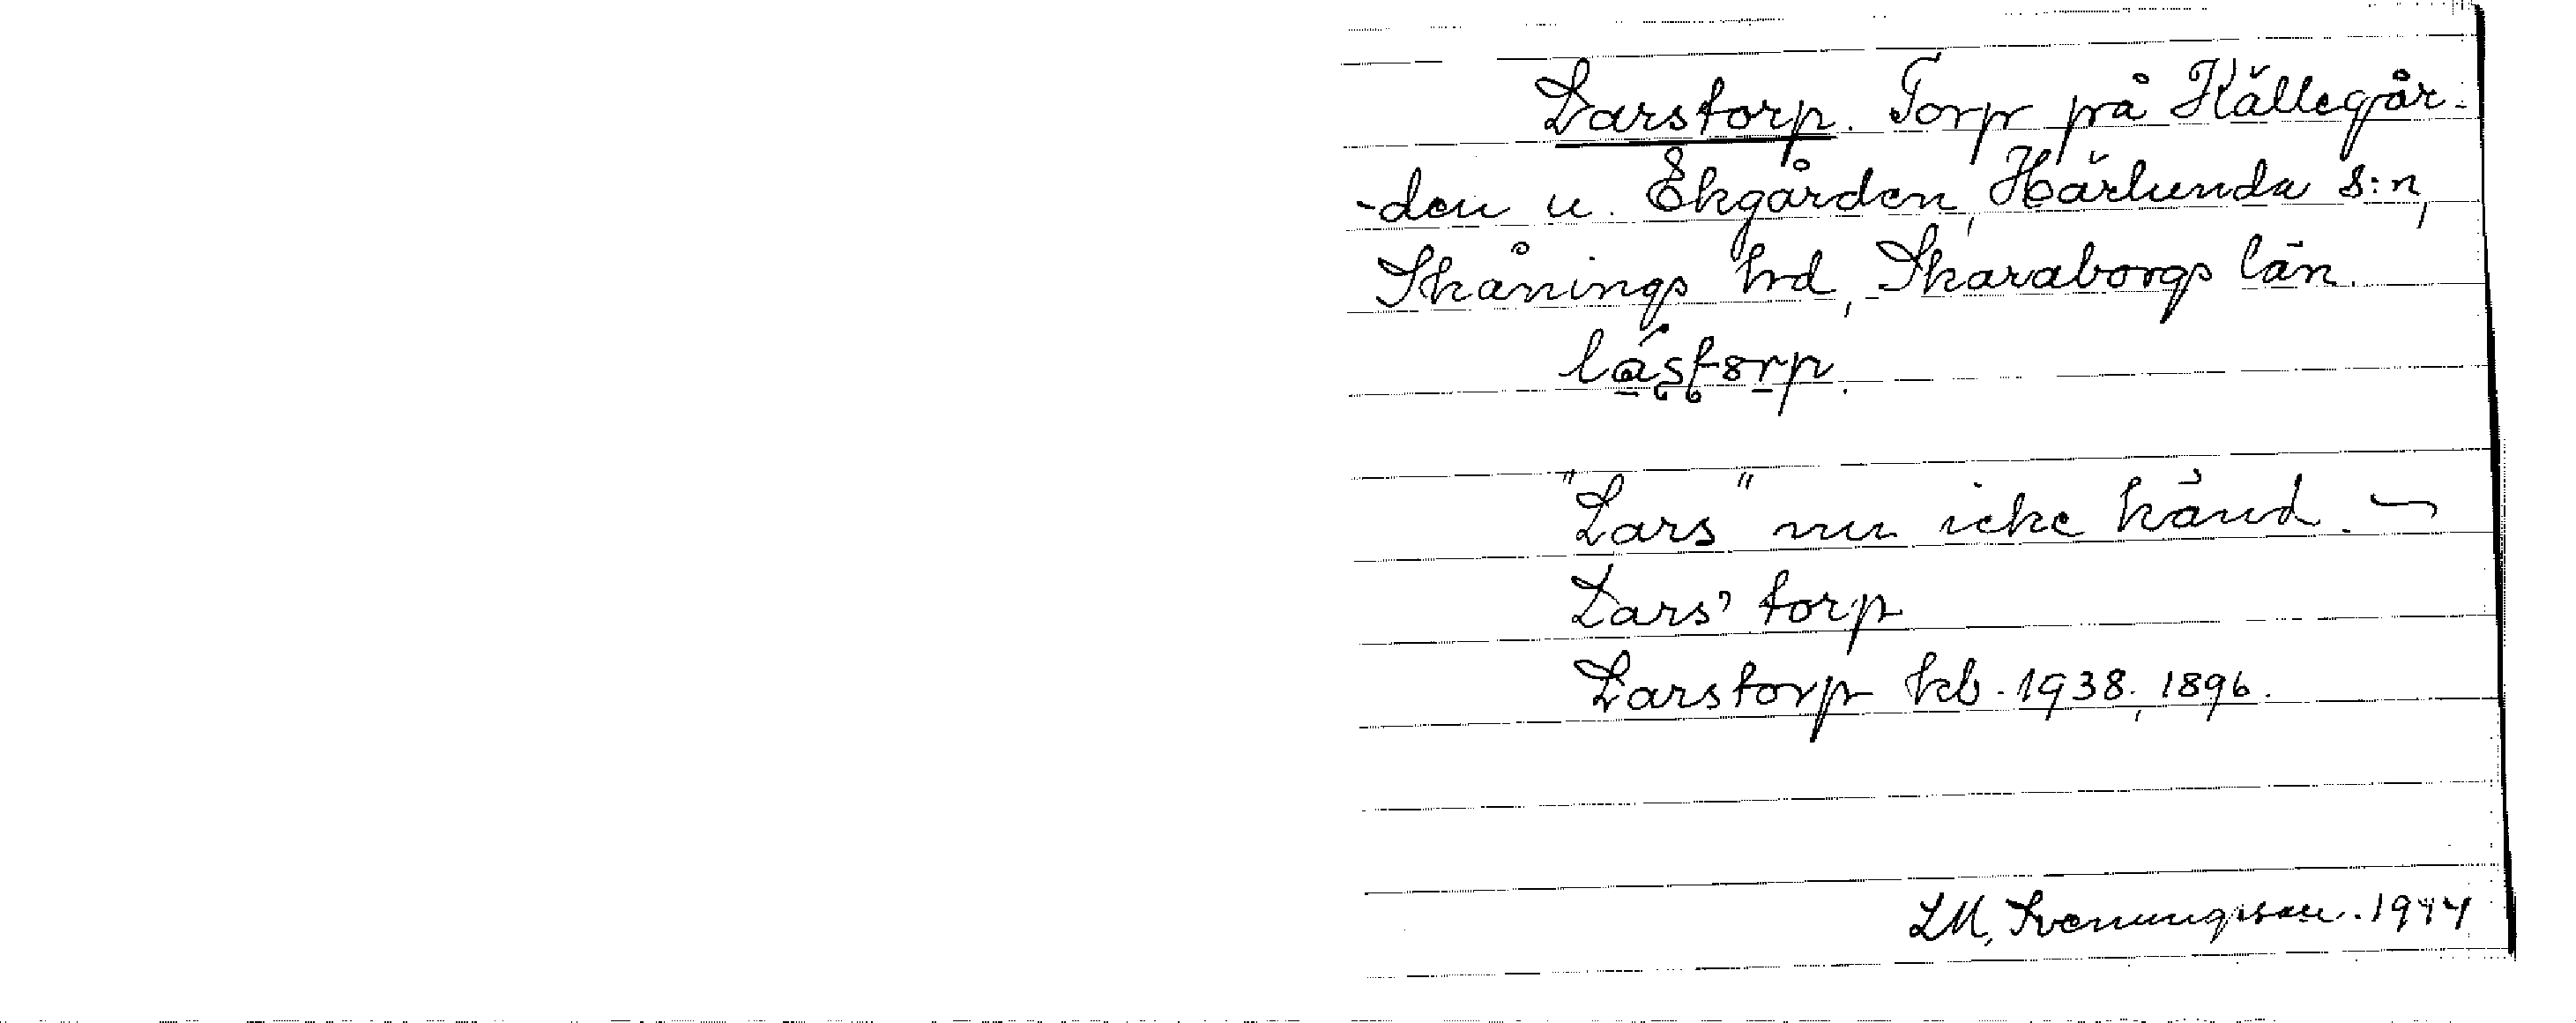 Larstorp. Torp på Källegår-
-den u. Ekgården, Härlunda s:n,
Skånings hrd, Skaraborgs län.
"Lars" nu icke känd. —
Lars' torp
Larstorp kb. 1938, 1896.
LM, Svenungsson. 1944